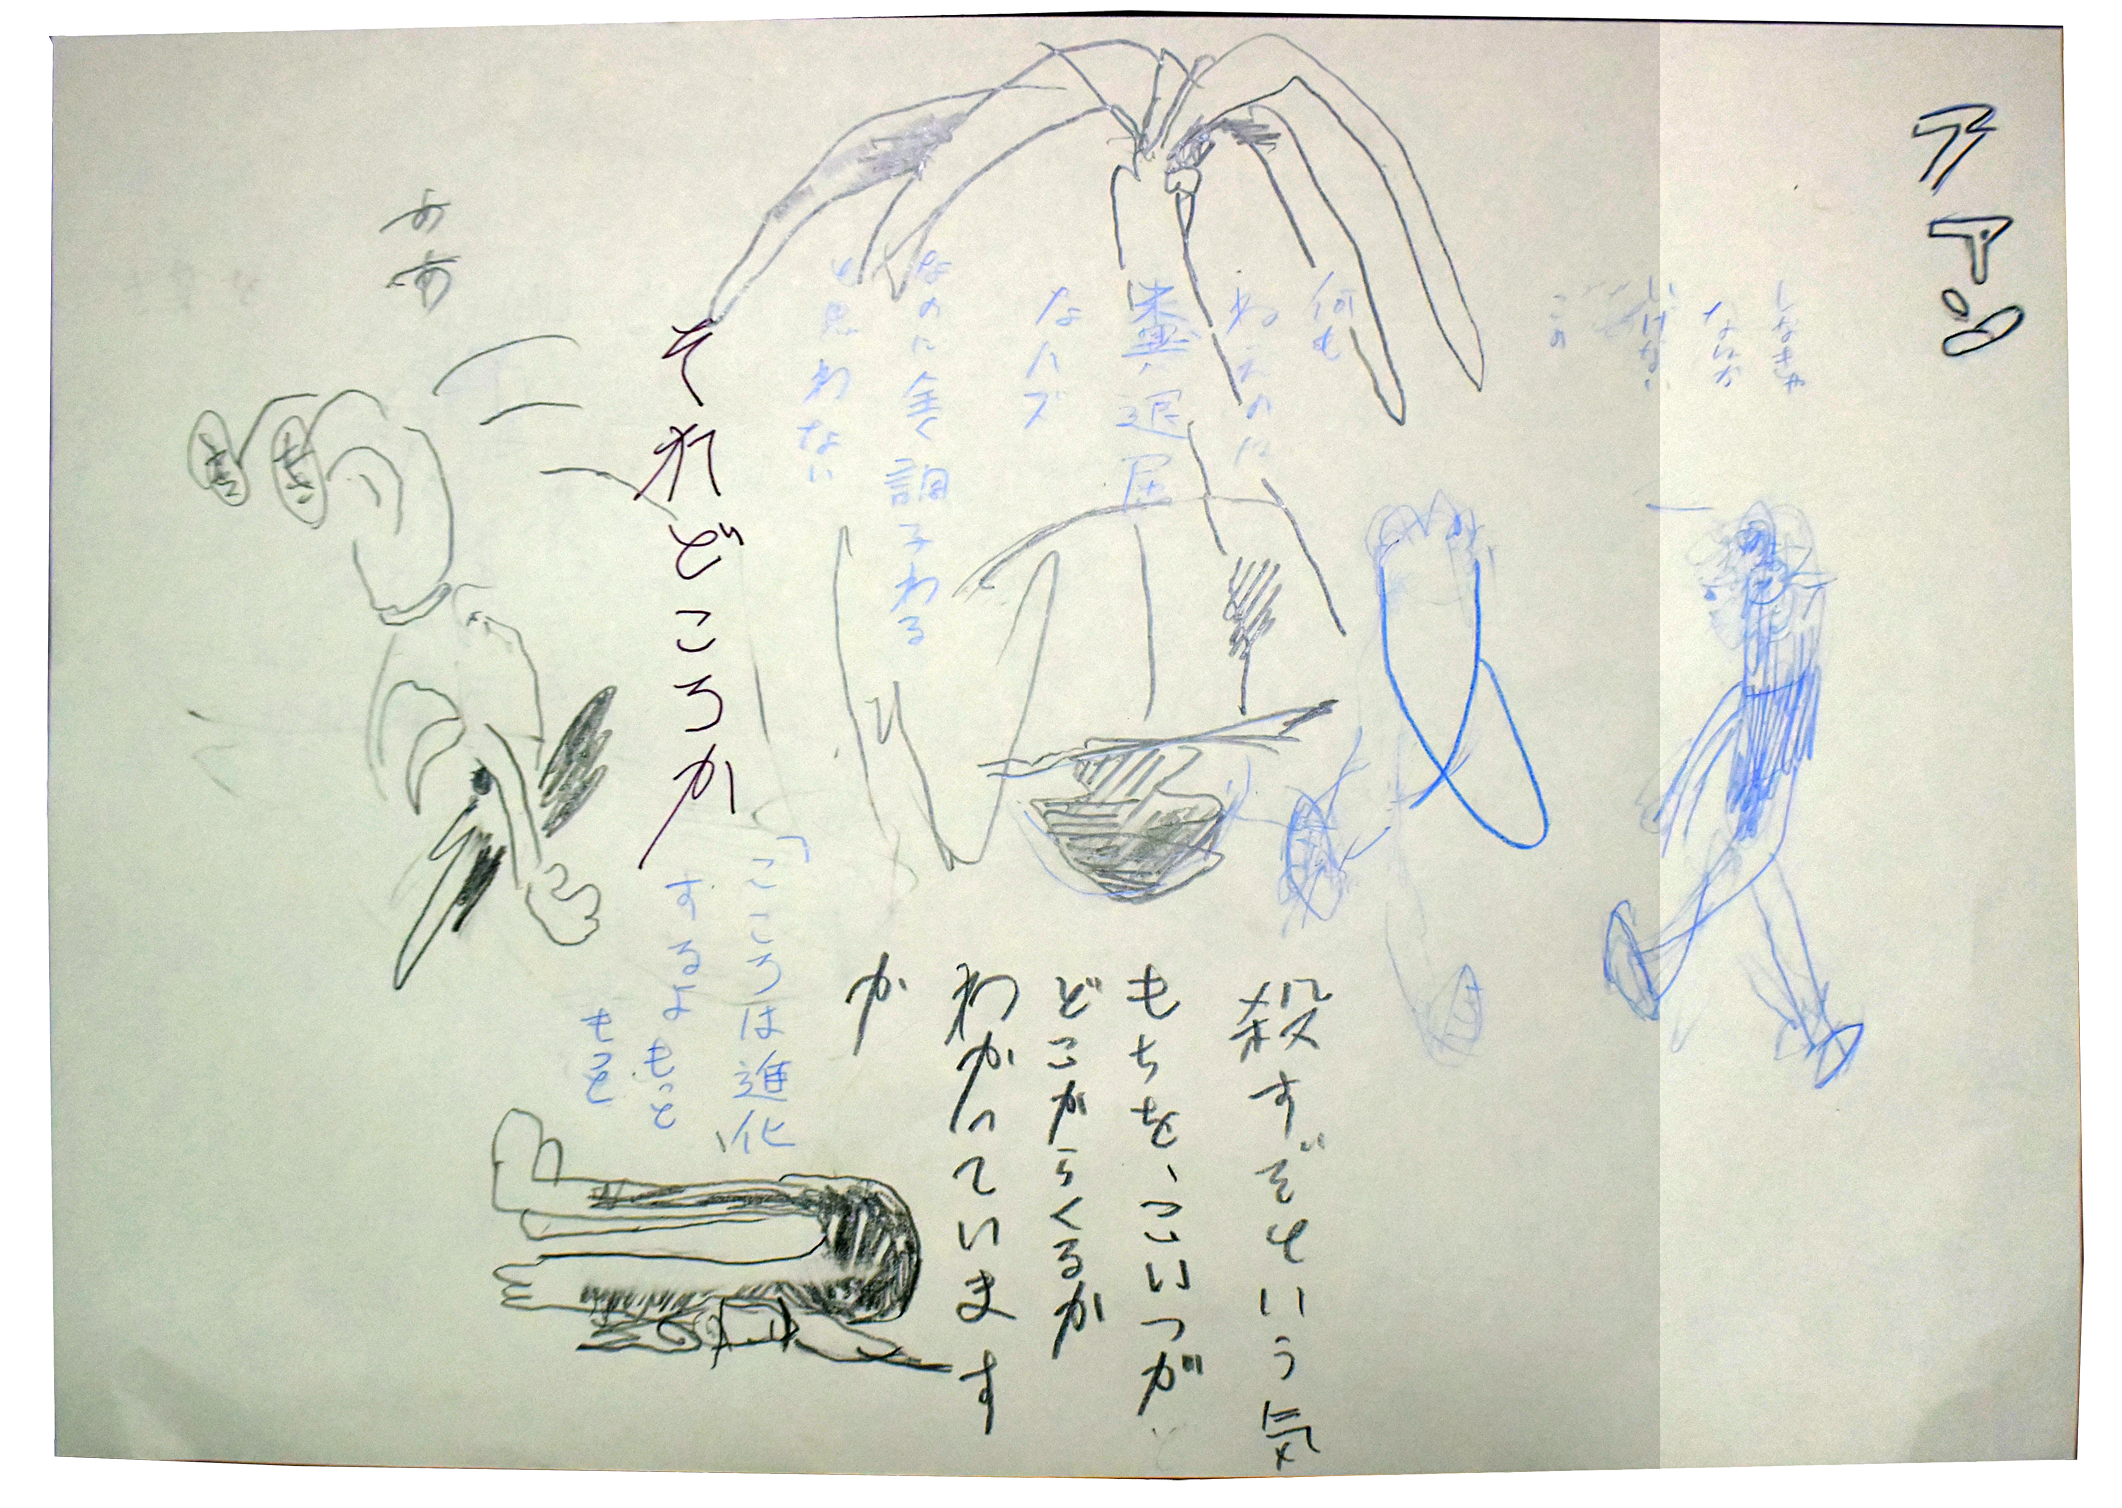 しなきゃ
なんか
いけない
この
何も
ねえのに
退屈
なハズ
なのに全く調子わる
と思わない
それどころか
「こころは進化
するよ もっと
もっと
殺すぞという気
もちを、こいつが
どこからくるか
わかっています
か